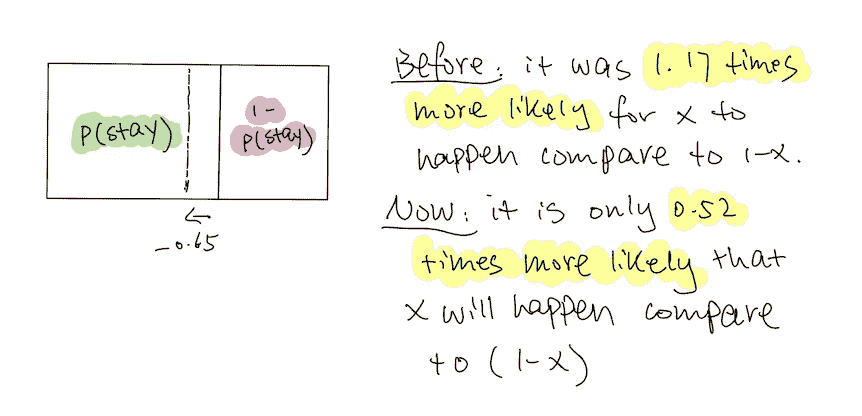 P(stay)
1-
P(stay)
← 
-0.65
Before: it was 1.17 times
more likely for x to
happen compare to 1-x.
Now: it is only 0.52
times more likely that
x will happen compare
to (1-x)